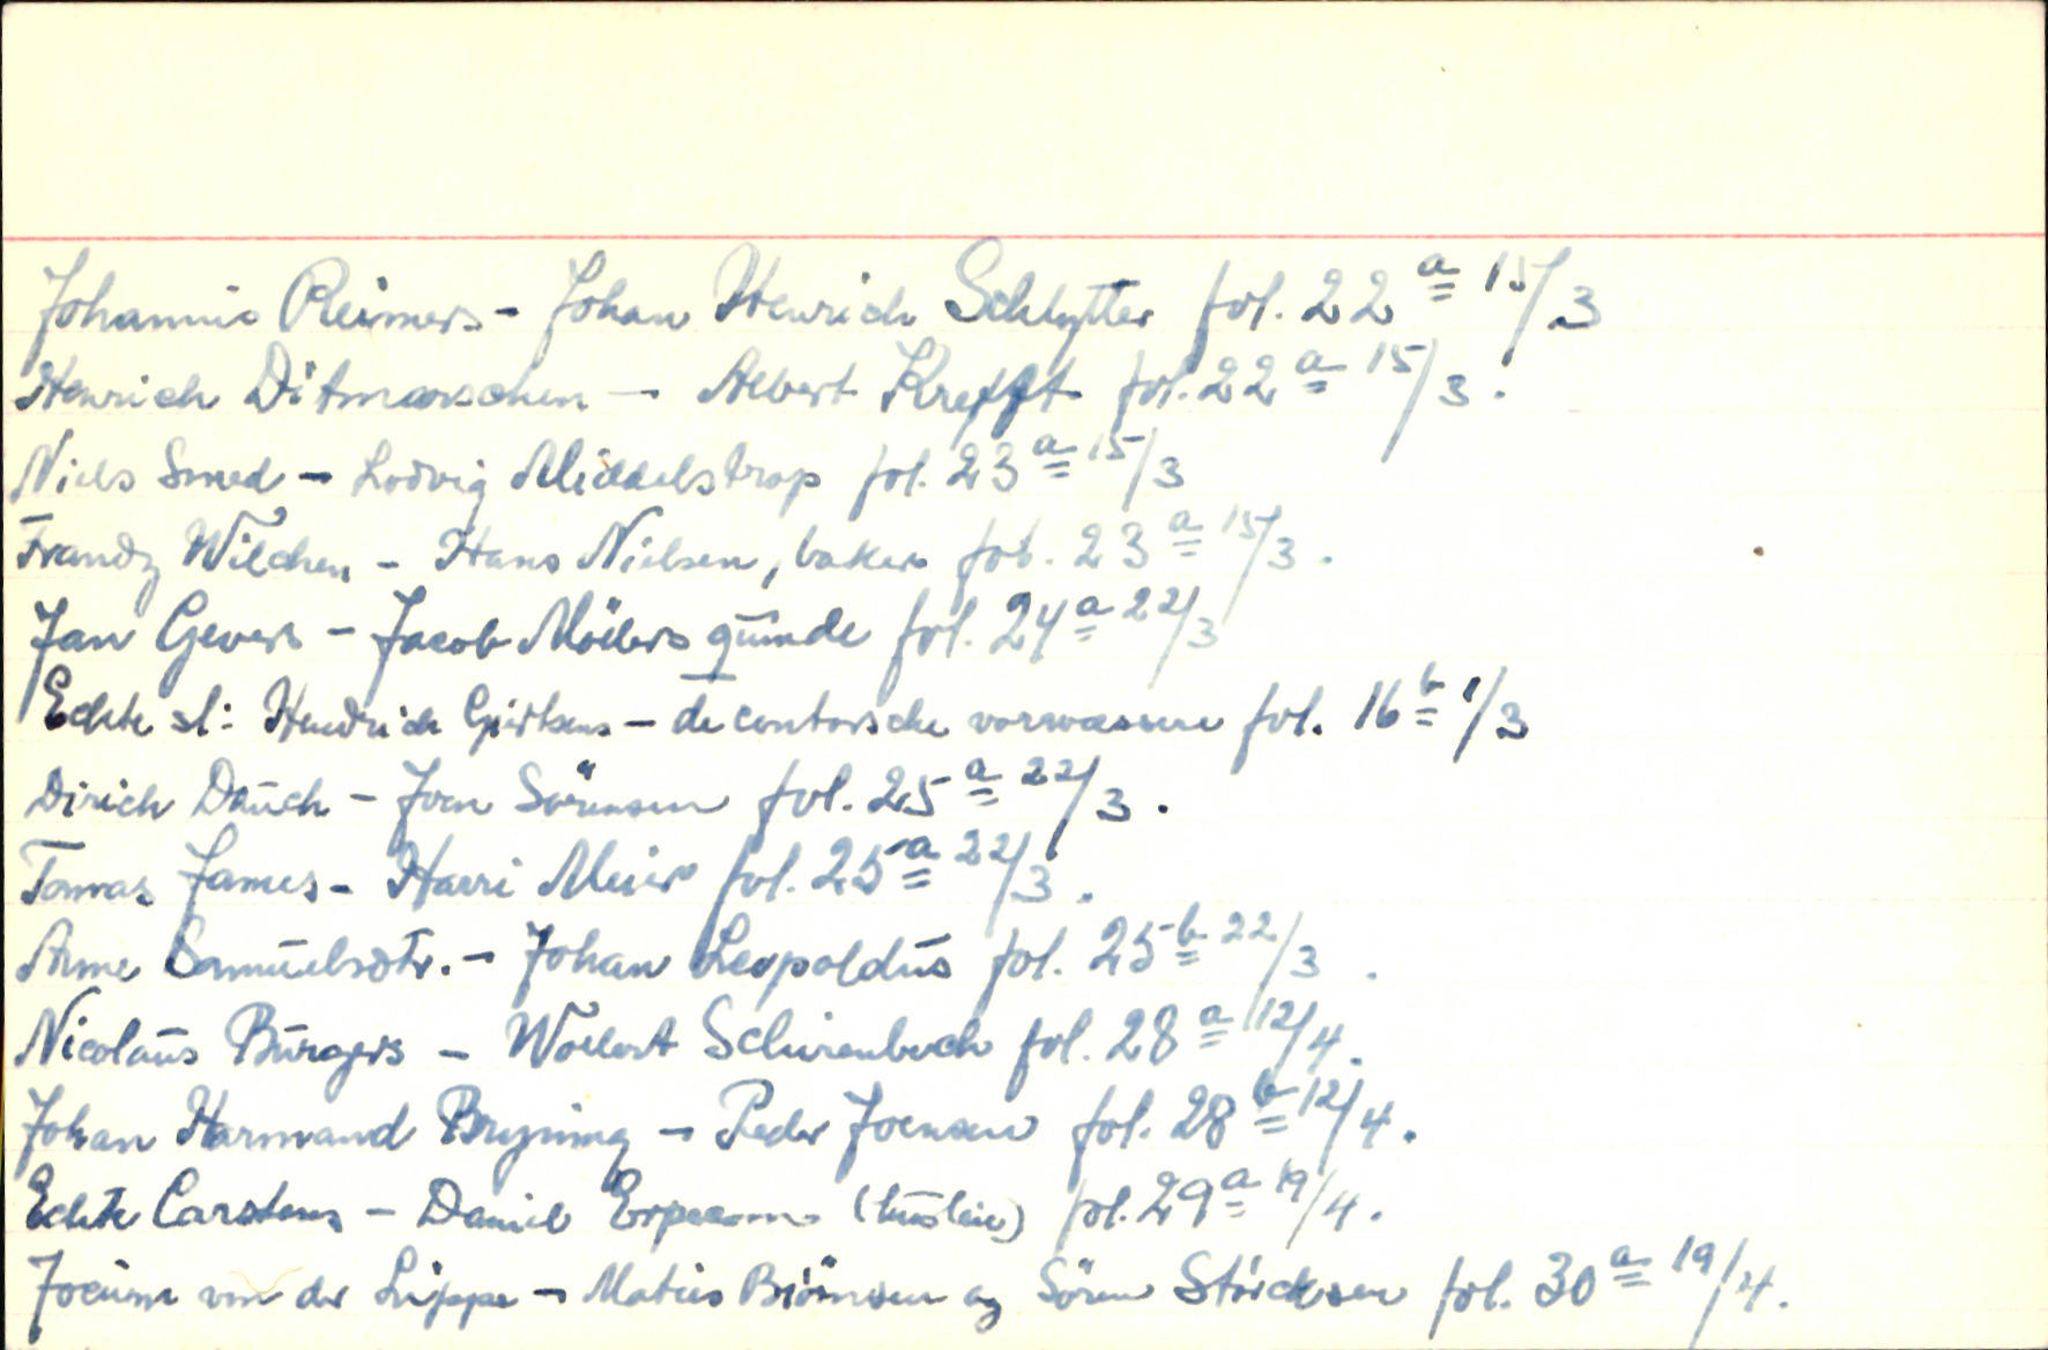 Johannis Reimers - Johan Henrich Schlytter fol. 22 a 15/3
Henrich Ditmarschen - Albert Krefft fol. 22 a 15/3.
Niels Smed - Lodvig Middelstrop fol. 23 a 15/3
Frandz Wilchen - Hans Nielsen, baker fol. 23 a 15/3.
Jan Gevers - Jacob Möllers qūinde fol. 24 a 22/3
Echte sl: Hendrich Girtkens - de contorsche vorwassere fol. 16 b 1/3
Dirich Daūch - Joen Sörensen fol. 25 a 22/3.
Tomas James - Harri Meier fol. 25 a 22/3.
Anne Samūelsdtr. - Johan Leopoldūs fol. 25 b 22/3.
Nicolaūs Būrgers - Wollert Schirenbech fol. 28 a 12/4.
Johan Harmand Bryning - Peder Joensen fol. 28 b 12/4.
Echte Carstens - Daniel (hūsleie) fol. 29 a 19/4.
Jocūm von der Lippe - Matias Biörnsen og Sören Störcksen fol. 30 a 19/4.